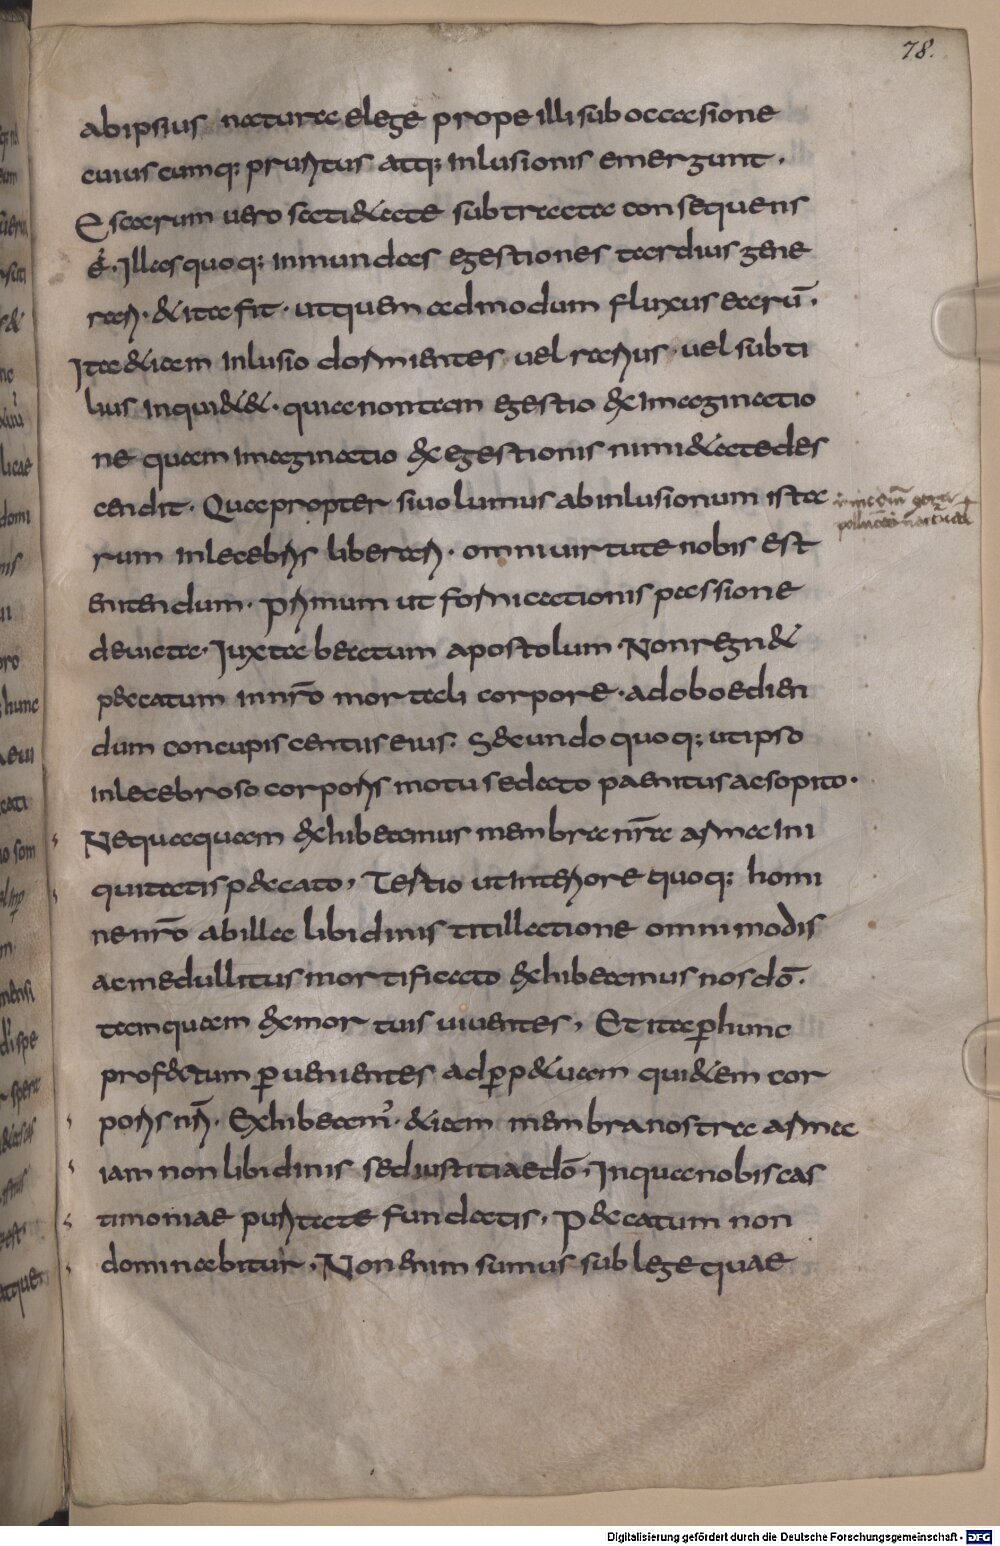 78.
ab ipsius naturae lege prope illi sub occasione
cuiuscumq; pruritus atq; inlusionis emergunt.
Escarum uero satietate subtracta consequens
ē. Illas quoq; inmundas egestiones tardius gene
rari. & ita fit. ut quem admodum fluxus earū.
Ita etiam inlusio dormientes uel rarius. uel subti
lius inquietet. quia non tam egestio ex imaginatio
ne quam imaginatio ex egestionis nimietate des
cendit. Quapropter si uolumus ab inlusionum ista
rum inlecebris liberari. omni uirtute nobis est
enitendum. Primum ut fornicationis passione
deuicta. Iuxta beatum apostolum. Non regnet
peccatum in nrō mortali corpore. ad oboedien
dum concupiscentiis eius. Secundo quoq; ut ipso
inlecebroso corporis motu sedato paenitus ac sopito.
Nequaquam exhibeamus membra nr̄a arma ini
quitatis peccato. Tertio ut interiore quoq; homi
ne nrō ab illa libidinis titillatione omnimodis
ac medullitus mortificato exhibeamus nos dō.
tamquam ex mortuis uiuentes. Et ita p̄ hunc
profectum p̄uenientes ad p̄petuam quietem cor
poris nr̄i. Exhibeam'. etiam membra nostra arma
iam non libidinis sed iustitiae dō. In qua nobis cas
timoniae puritate fundatis. Peccatum non
dominabitur. Non enim sumus sub lege quae
Digitalisierung gefördert durch die Deutsche Forschungsgemeinschaft - DFG